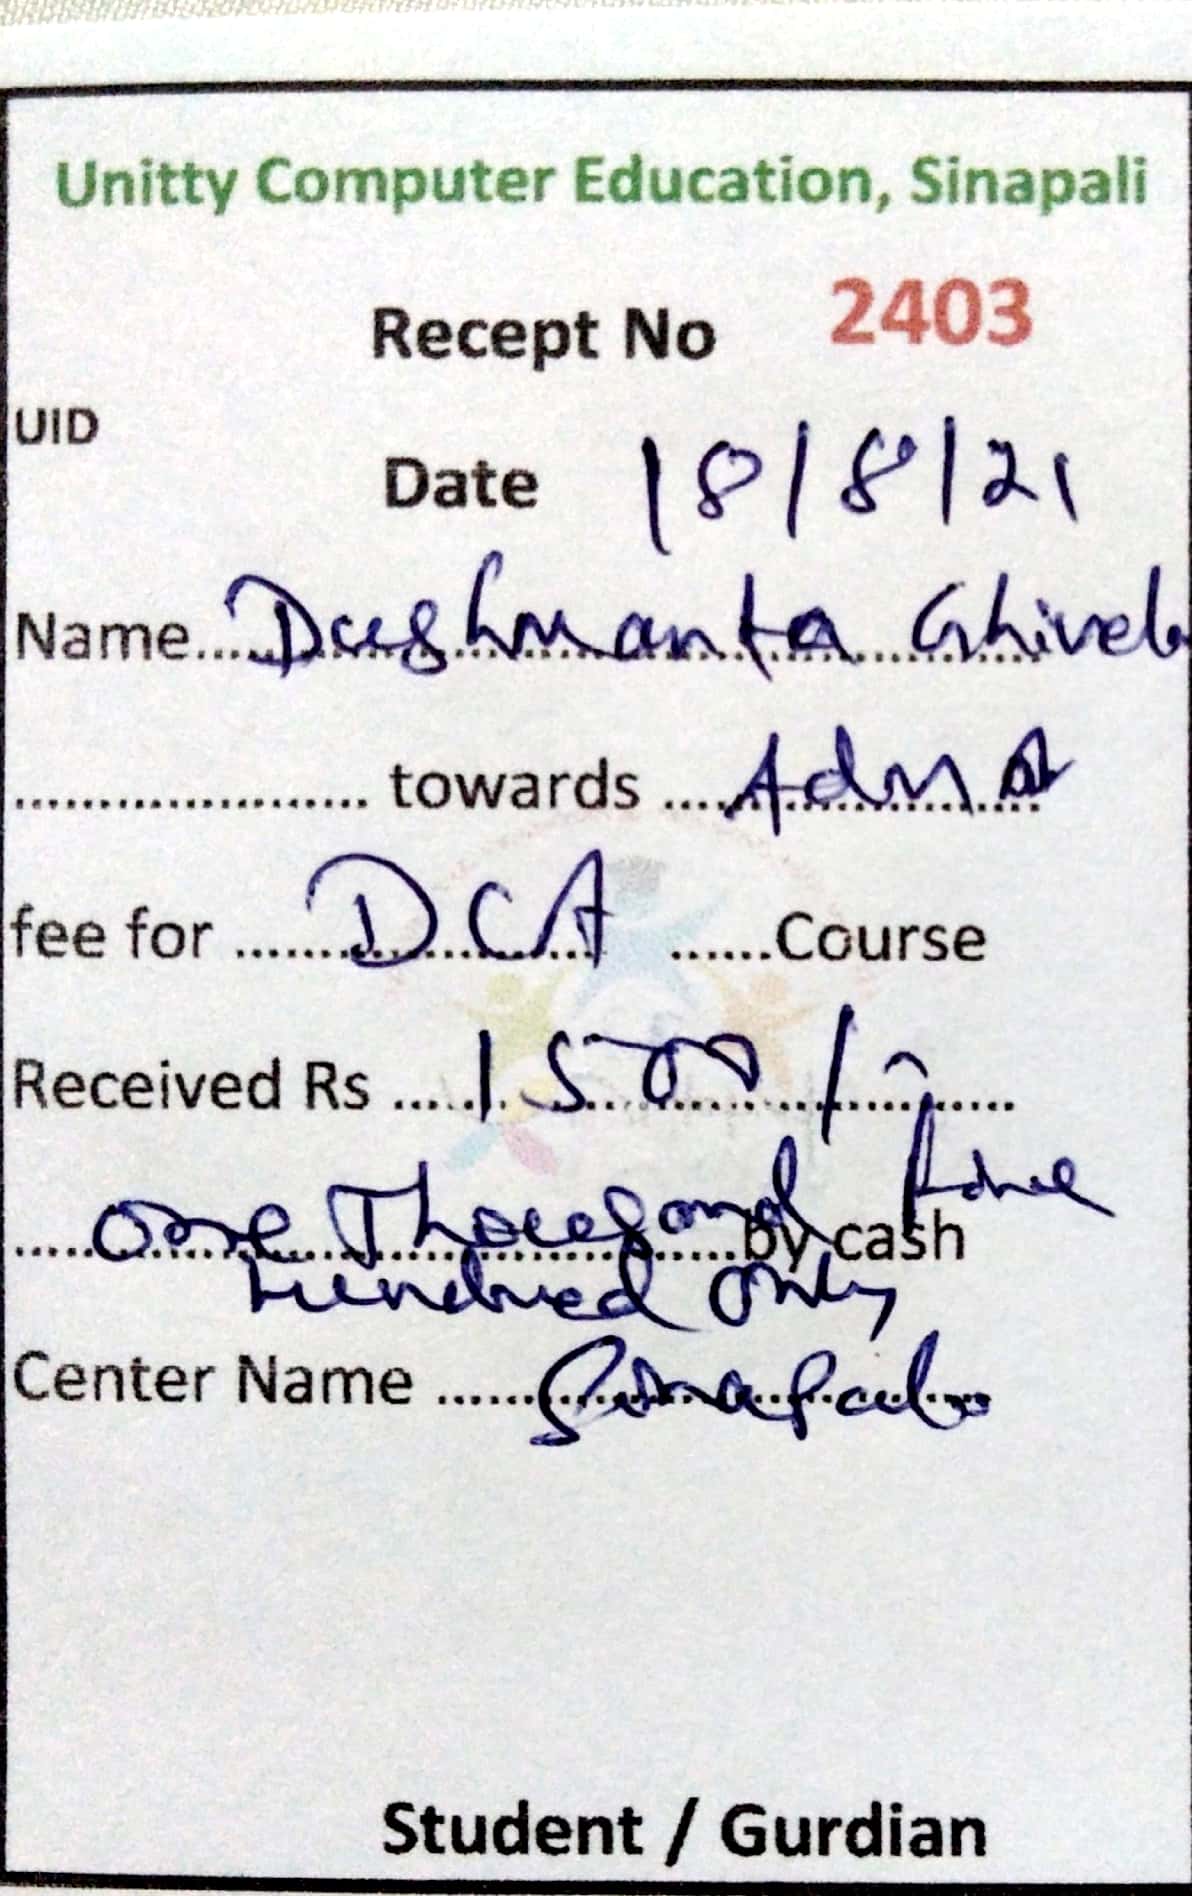 Unitty Computer Education, Sinapali
Recept No 2403
UID
Date 18/8/21
Name.....Dushmanta
..................... towards ....
fee for ....... DCA ......Course
Received Rs ..... 1500/-
..... One Thousand five .....by cash
hundred only
Center Name ...... Sinapali
Student / Gurdian